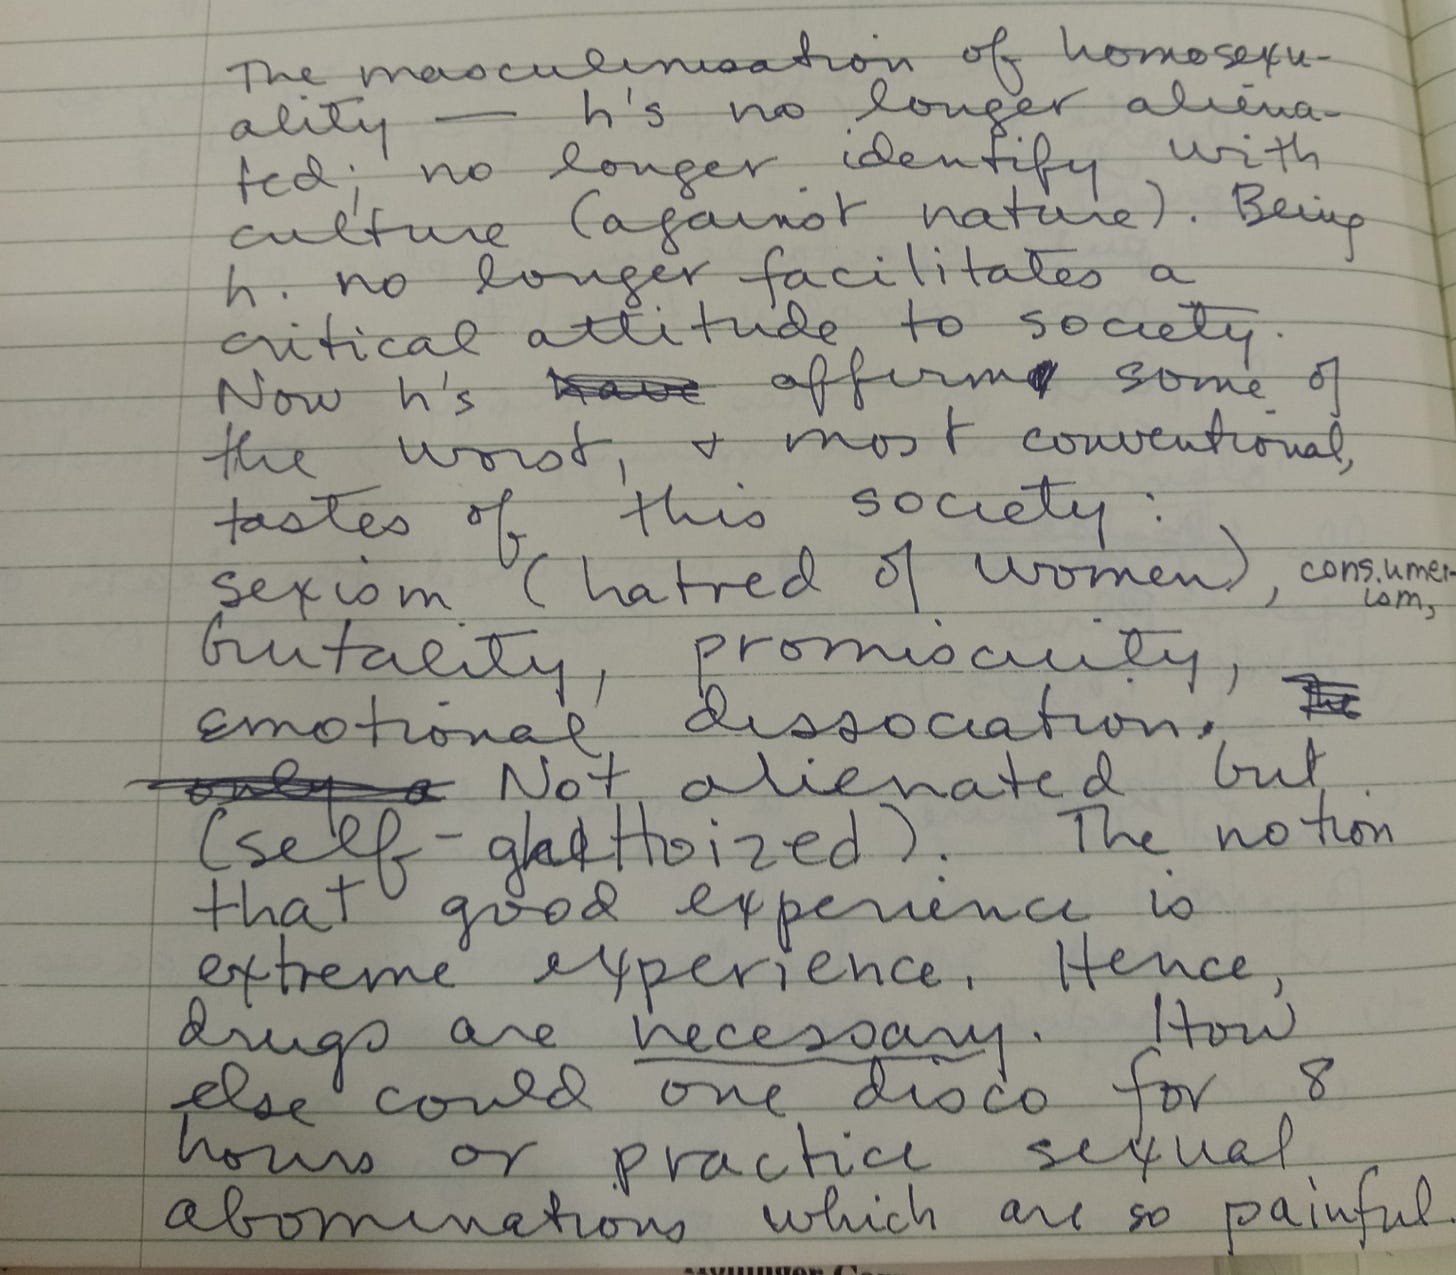 The masculinisation of homosexu-
ality — h's no longer aliena-
ted; no longer identify with
culture (against nature). Being
h. no longer facilitates a
critical attitude to society.
Now h's have affirm some of
the worst, & most conventional,
tastes of this society:
sexism (hatred of women), consumer-
ism,
brutality, promiscuity,
emotional dissociation. The
only a Not alienated but
(self-ghettoized). The notion
that good experience is
extreme experience. Hence,
drugs are necessary. How
else could one disco for 8
hours or practice sexual
abominations which are so painful.